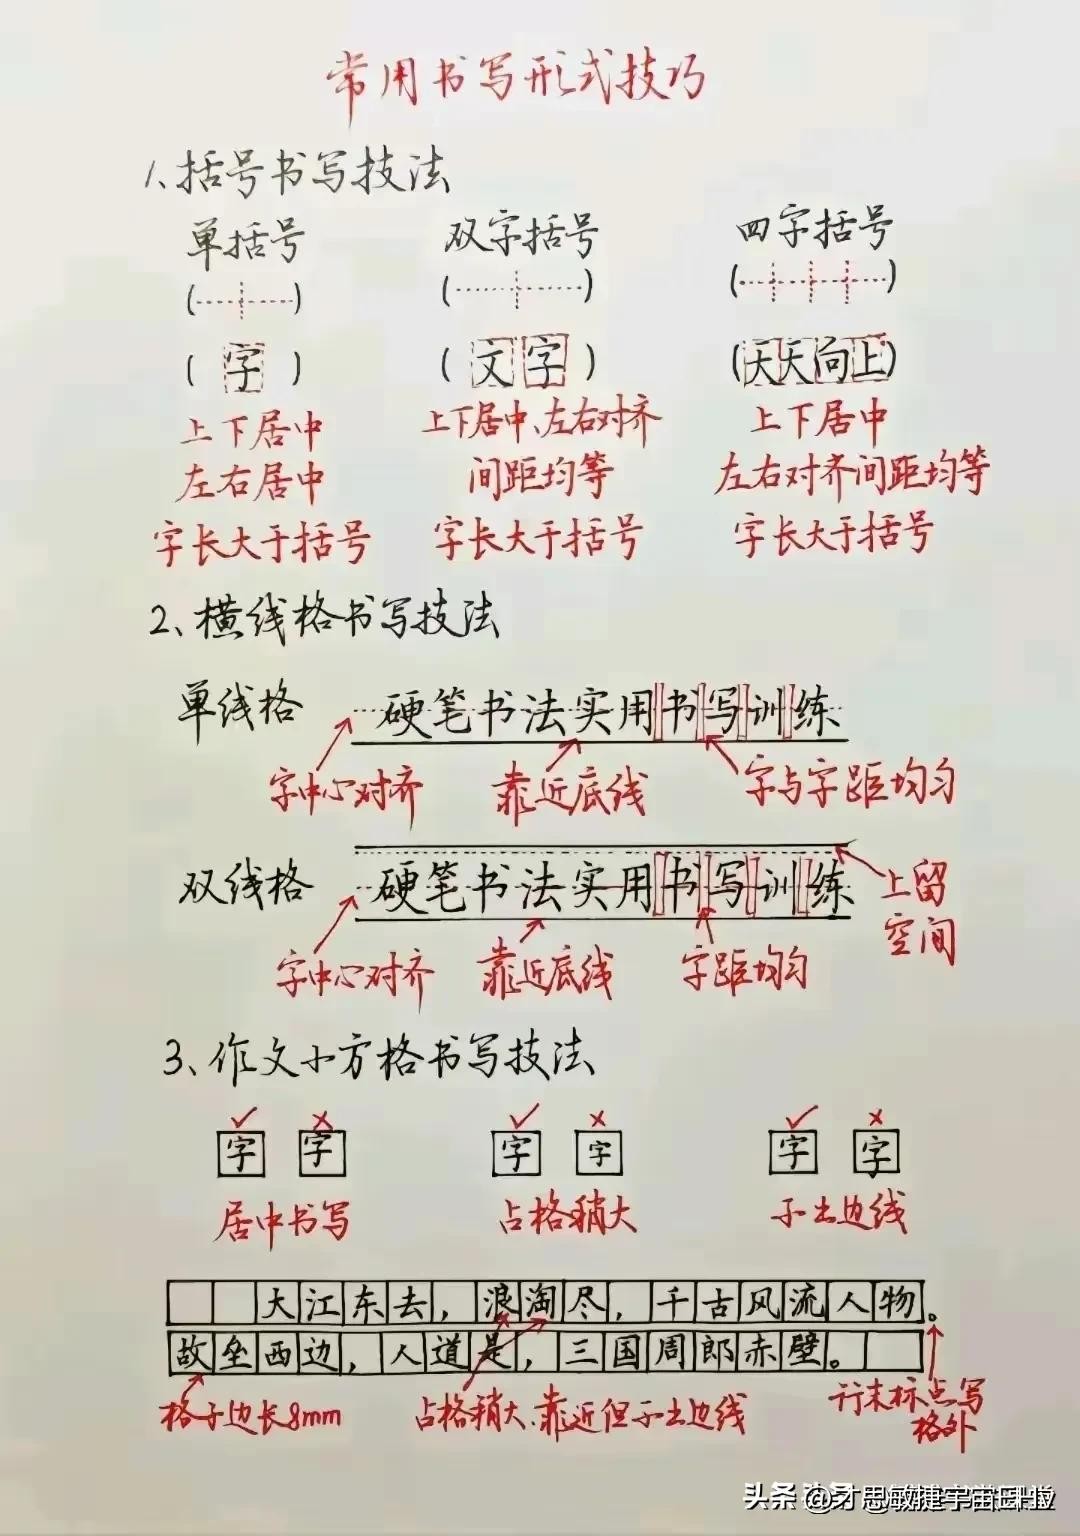 常用书写形式技巧
1、括号书写技法
单括号 双字括号 四字括号
( ) ( ) ( )
(字) (文字) (天天向上)
上下居中 上下居中、左右对齐 上下居中
左右居中 间距均等 左右对齐间距均等
字长大于括号 字长大于括号 字长大于括号
2、横线格书写技法
单线格 硬笔书法实用书写训练
字中心对齐 靠近底线 字与字距均匀
双线格 硬笔书法实用书写训练
上留
空间
字中心对齐 靠近底线 字距均匀
3、作文小方格书写技法
✓ × ✓ × ✓ ×
字 字 字 字 字 字
居中书写 占格稍大 不出边线
大江东去，浪淘尽，千古风流人物。
故垒西边，人道是，三国周郎赤壁。
格子边长8mm 占格稍大、靠近但不出边线 行末标点写
格外
头条 @才思敏捷宇宙